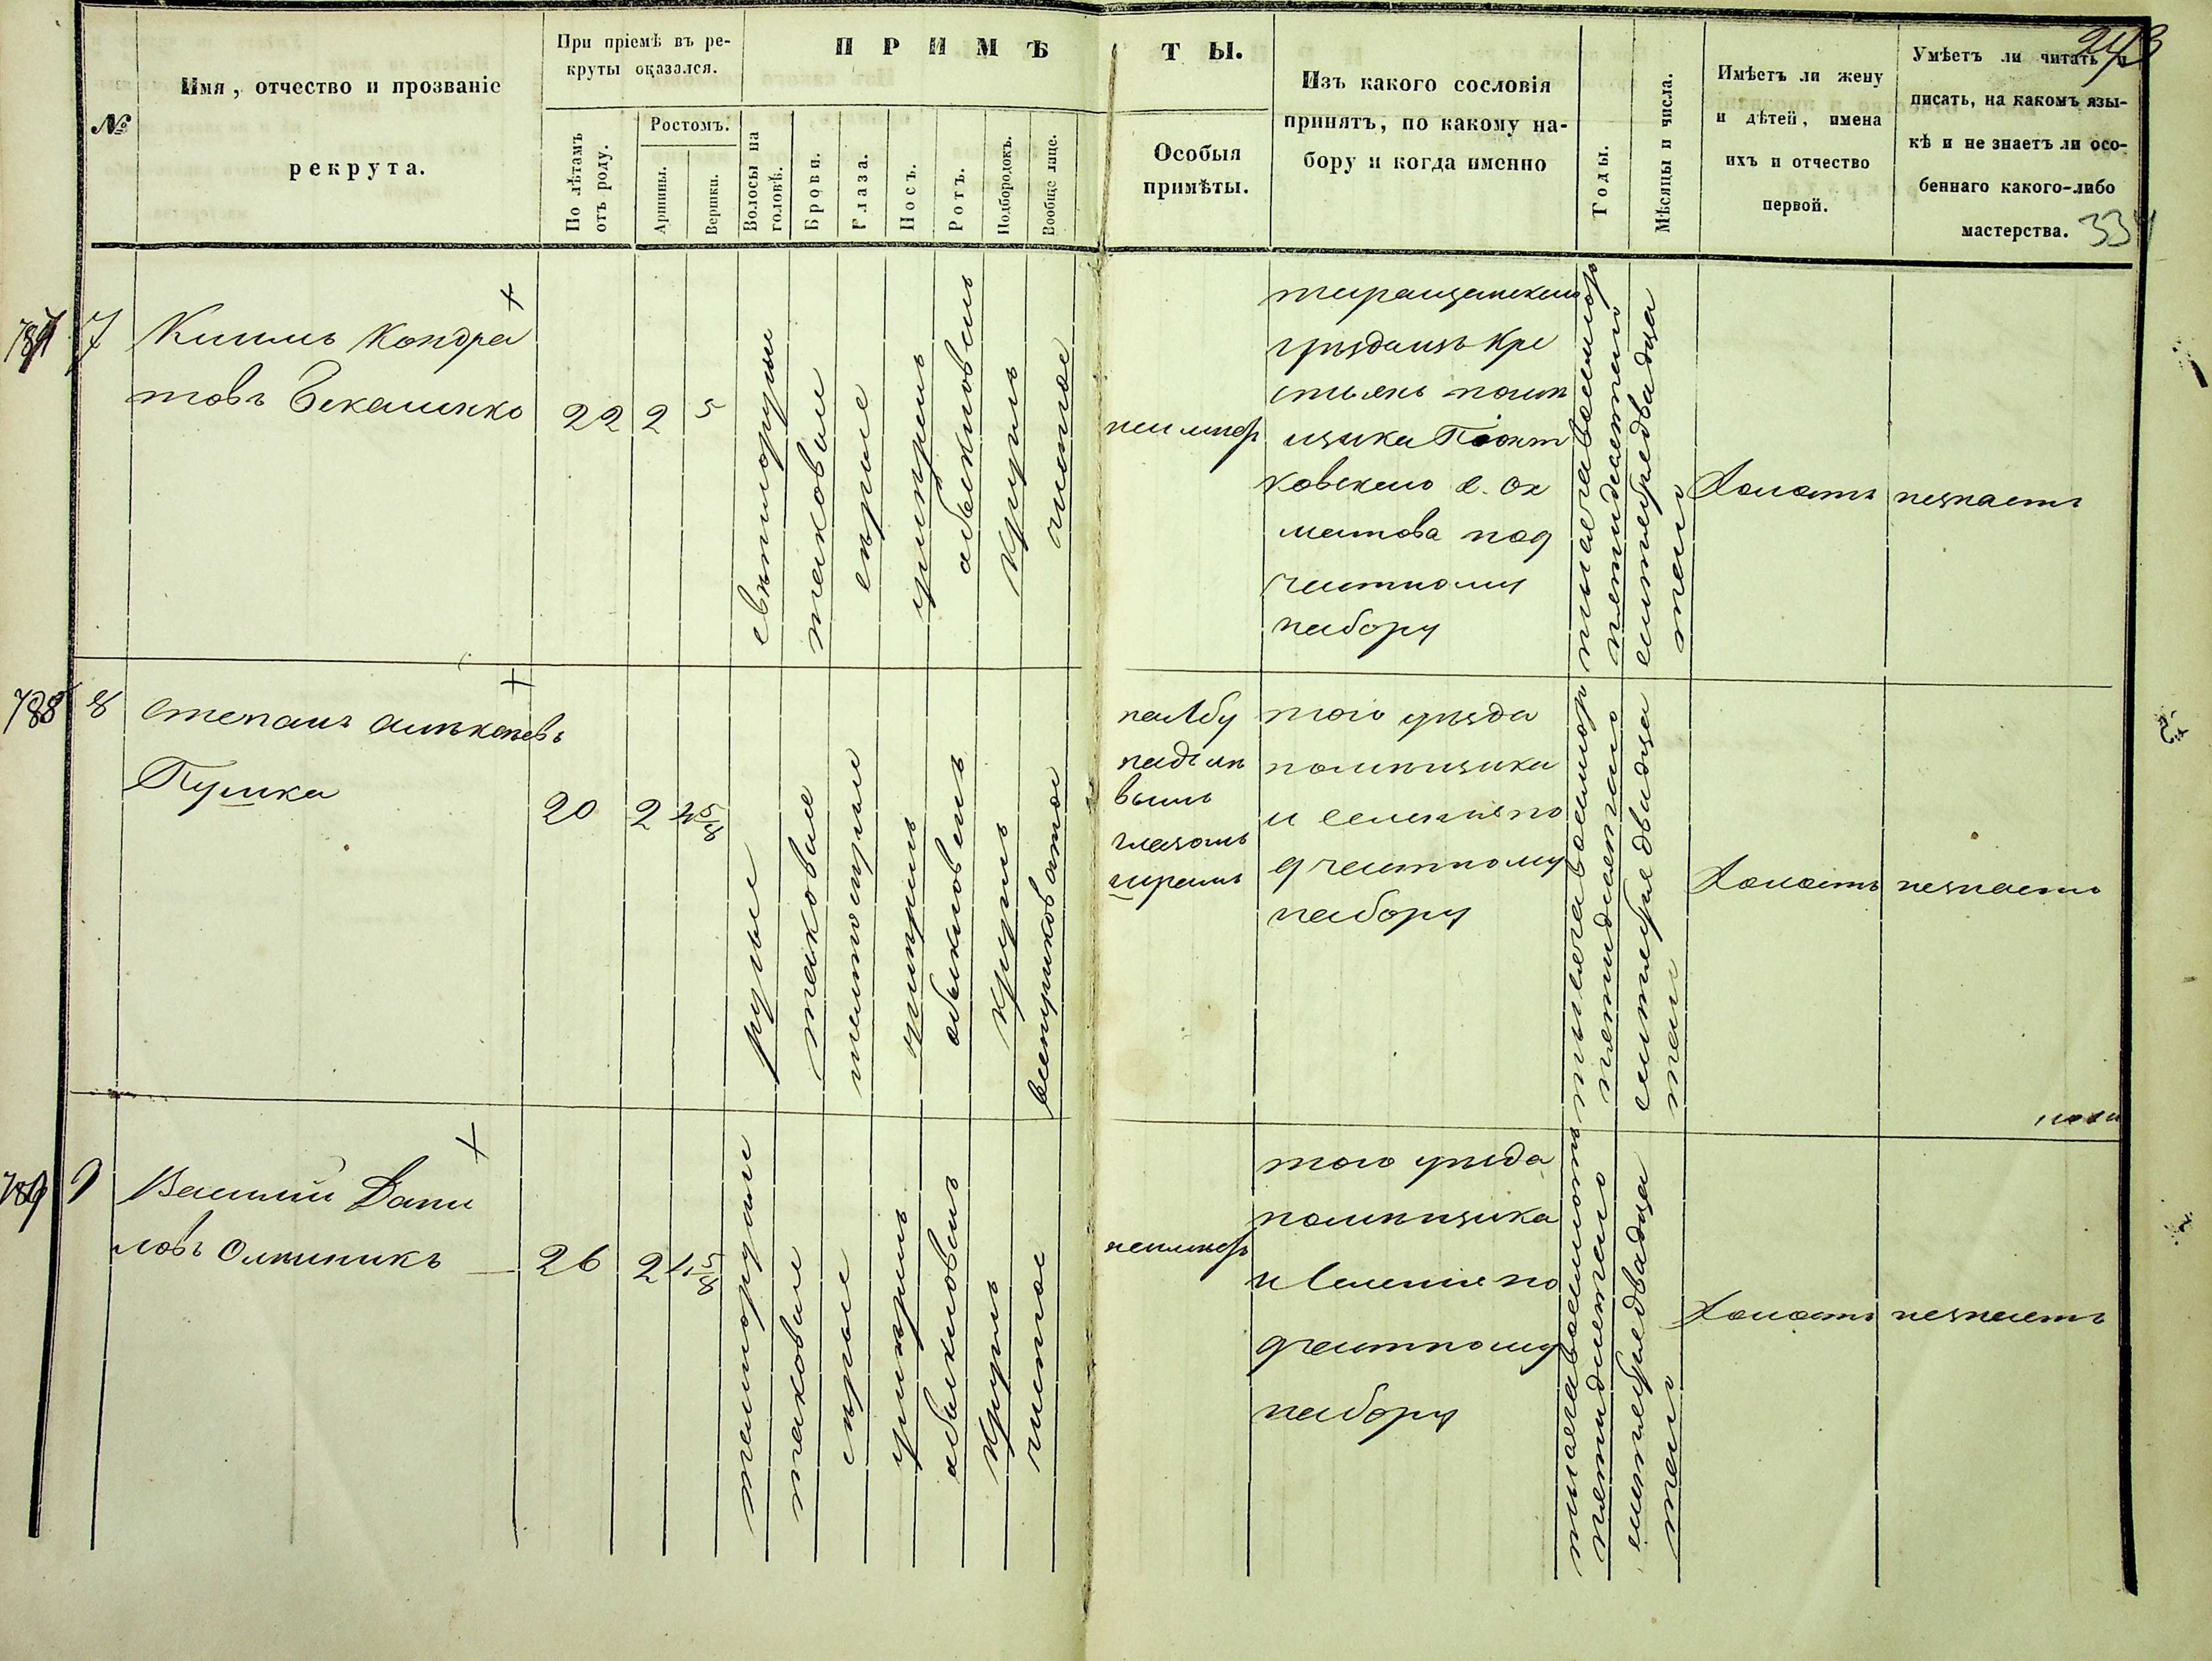 243
334
№
Имя, отчество и прозваніе
рекрута.
При пріемѣ въ ре-
круты оказался.
По лѣтамъ
отъ роду.
Ростомъ.
Аршины.
Вершки.
ПРИМѢТЫ.
Волосы на
головѣ.
Брови.
Глаза.
Носъ.
Ротъ.
Подбородокъ.
Вообще лице.
Особыя
примѣты.
Изъ какого сословія
принятъ, по какому на-
бору и когда именно
Годы.
Мѣсяцы и числа.
Имѣетъ ли жену
и дѣтей, имена
ихъ и отчество
первой.
Умѣетъ ли читать и
писать, на какомъ язы-
кѣ и не знаетъ ли осо-
беннаго какого-либо
мастерства.
787
7
Кондра
товъ
22
2
5
светлорусые
таковые
серые
умерен
обыкновен
кругл
чистое
неимеет
таращанскаго
уѣзда изъ кре
стьянъ помѣ
щика
ковскаго с. Ох
матова под
частному
набору
тысяча восемьсот
пятьдесятого
сентября двадца
таго
Холостъ
незнаетъ
788
8
Степанъ Алексѣевъ
Пушка
20
2
4 5/8
русые
таковые
умерен
обыкновен
кругл
весноватое
на лбу
над лѣ
вымъ
глазомъ
шрамъ
того уѣзда
помѣщика
и селения по
д частному
набору
тысяча восемьсот
пятьдесятого
сентября двадца
таго
Холостъ
незнаетъ
789
9
Василий Дани
ловъ Олѣйникъ
26
2
4 5/8
темнорусые
таковые
серые
умерен
обыкновен
кругл
чистое
неимеет
того уѣзда
помѣщика
и селения по
д частному
набору
тысяча восемьсот
пятьдесятого
сентября двадца
таго
Холостъ
незнаетъ